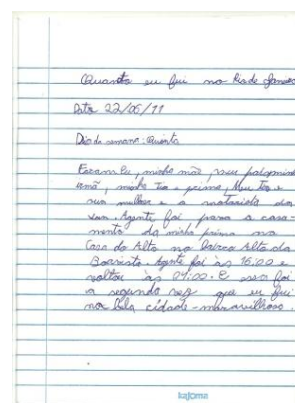 Quando eu fui no Rio de Janeiro
Data 22/06/11
Dia da semana: Quinta
Foram Eu, minha mãe, meu pai, minha
irmã, minha tia e prima, Meu tio e
sua mulher e a motorista da
van. Agente foi para o casa-
mento da minha prima na
Casa do Alto no Bairro Alto da
Boavista. Agente foi às 16:00 e
voltou às 04:00. E essa foi
a segunda vez que eu fui
na bela cidade-maravilhosa.
kajoma